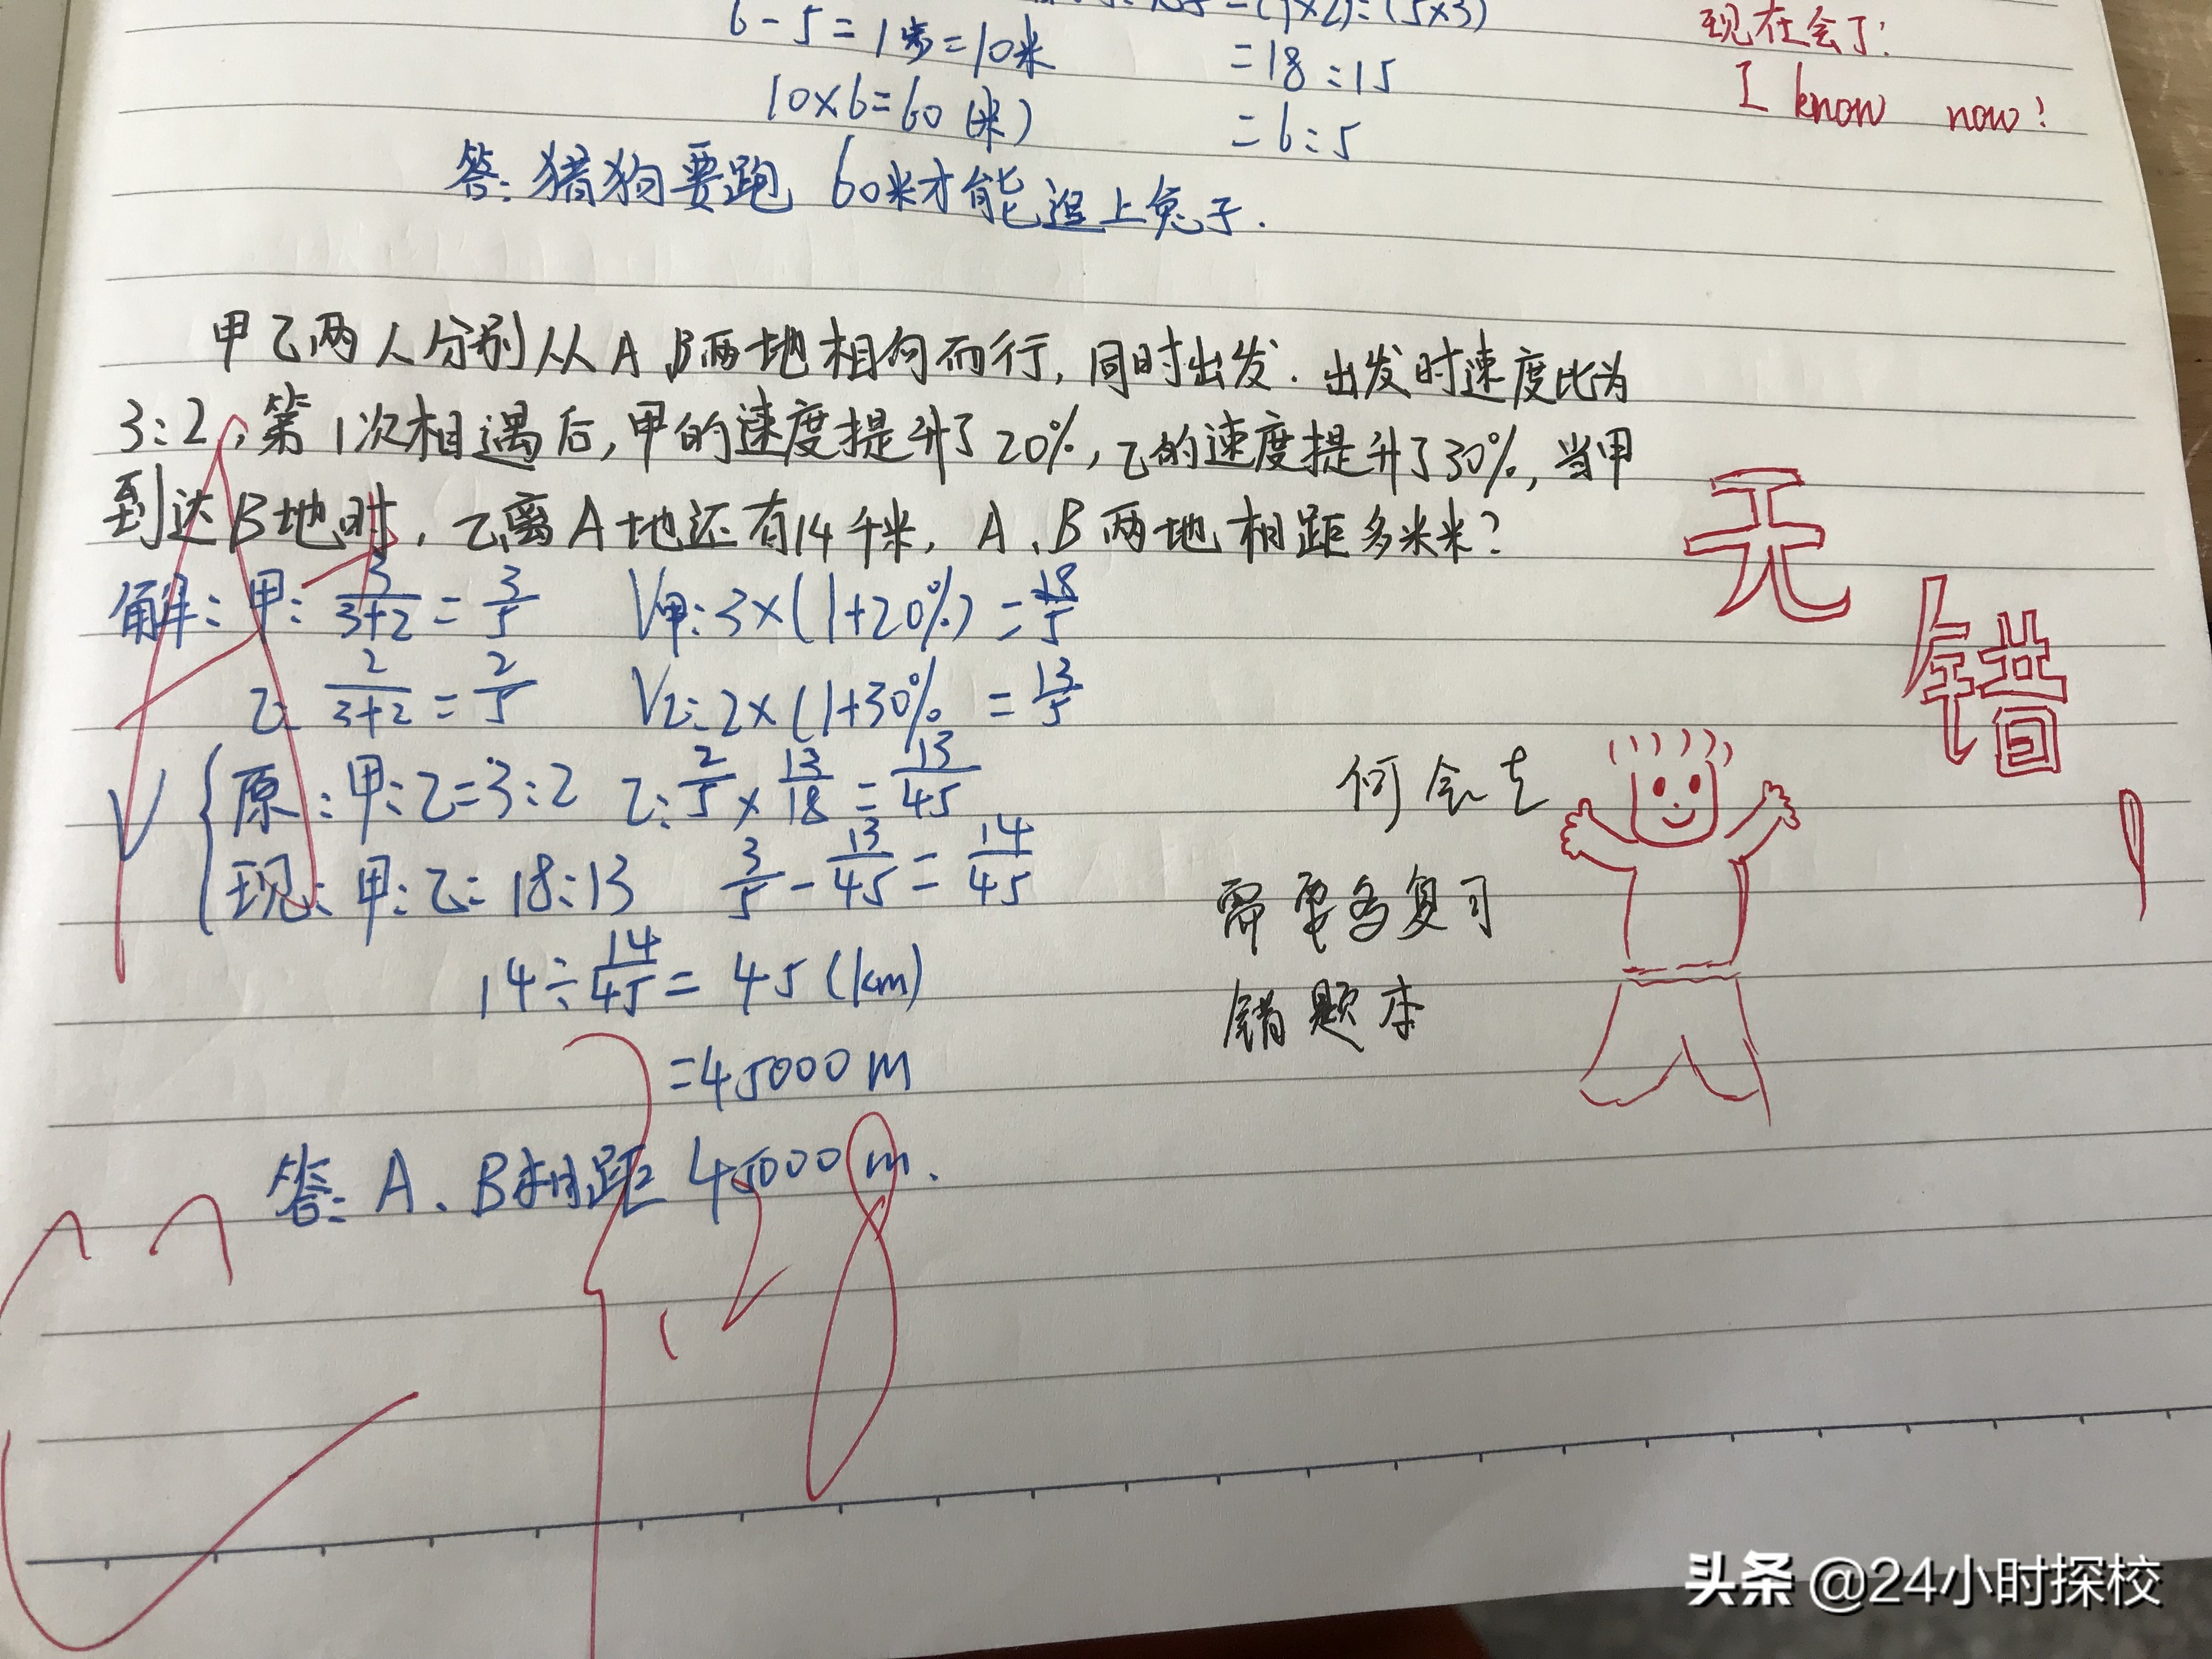 =(9×2):(5×3)
6-5=1步=10米
=18:15
10×6=60(米)
=6:5
答:猎狗要跑60米才能追上兔子.
现在会了!
I know now!
甲乙两人分别从A、B两地相向而行,同时出发.出发时速度比为
3:2,第1次相遇后,甲的速度提升了20%,乙的速度提升了30%,当甲
到达B地时,乙离A地还有14千米,A、B两地相距多米米?
解:甲:3/3+2=3/5 V甲:3×(1+20%)=18/5
乙:2/3+2=2/5 V乙:2×(1+30%=13/5
V{原:甲:乙=3:2 乙:2/5×13/18=13/45
现:甲:乙=18:13 3/5-13/45=14/45
14÷14/45=45(km)
=45000m
答:A、B相距45000m.
无
错
!
何会
需要多复习
错题本
头条 @24小时探校